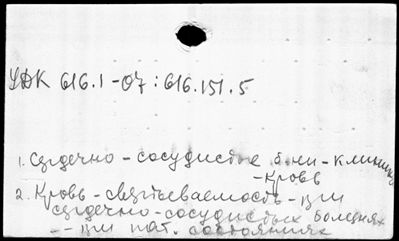 УДК 616.1-07:616.151.5
1. Сердечно-сосудистые б-ни - клиника
- Кровь
2. Кровь - свертываемость - при
сердечно-сосудистых болезнях
-- при пат. состояниях